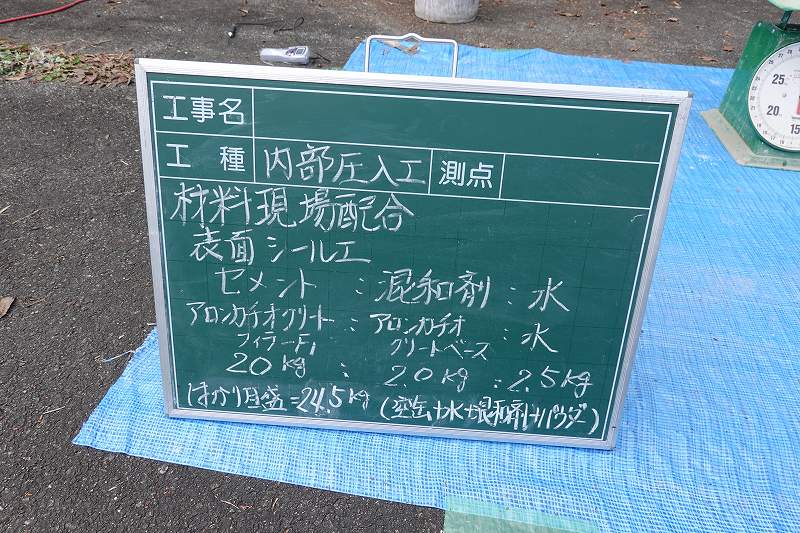 工事名
工種 内部圧入工 測点
材料現場配合
表面シール工
セメント : 混和剤 : 水
アロンカチオクリート : アロンカチオ : 水
フィラーF1 クリートベース
20kg : 2.0kg : 2.5kg
はかり目盛=24.5kg (空缶+水+混和剤+パウダー)
25
20
15